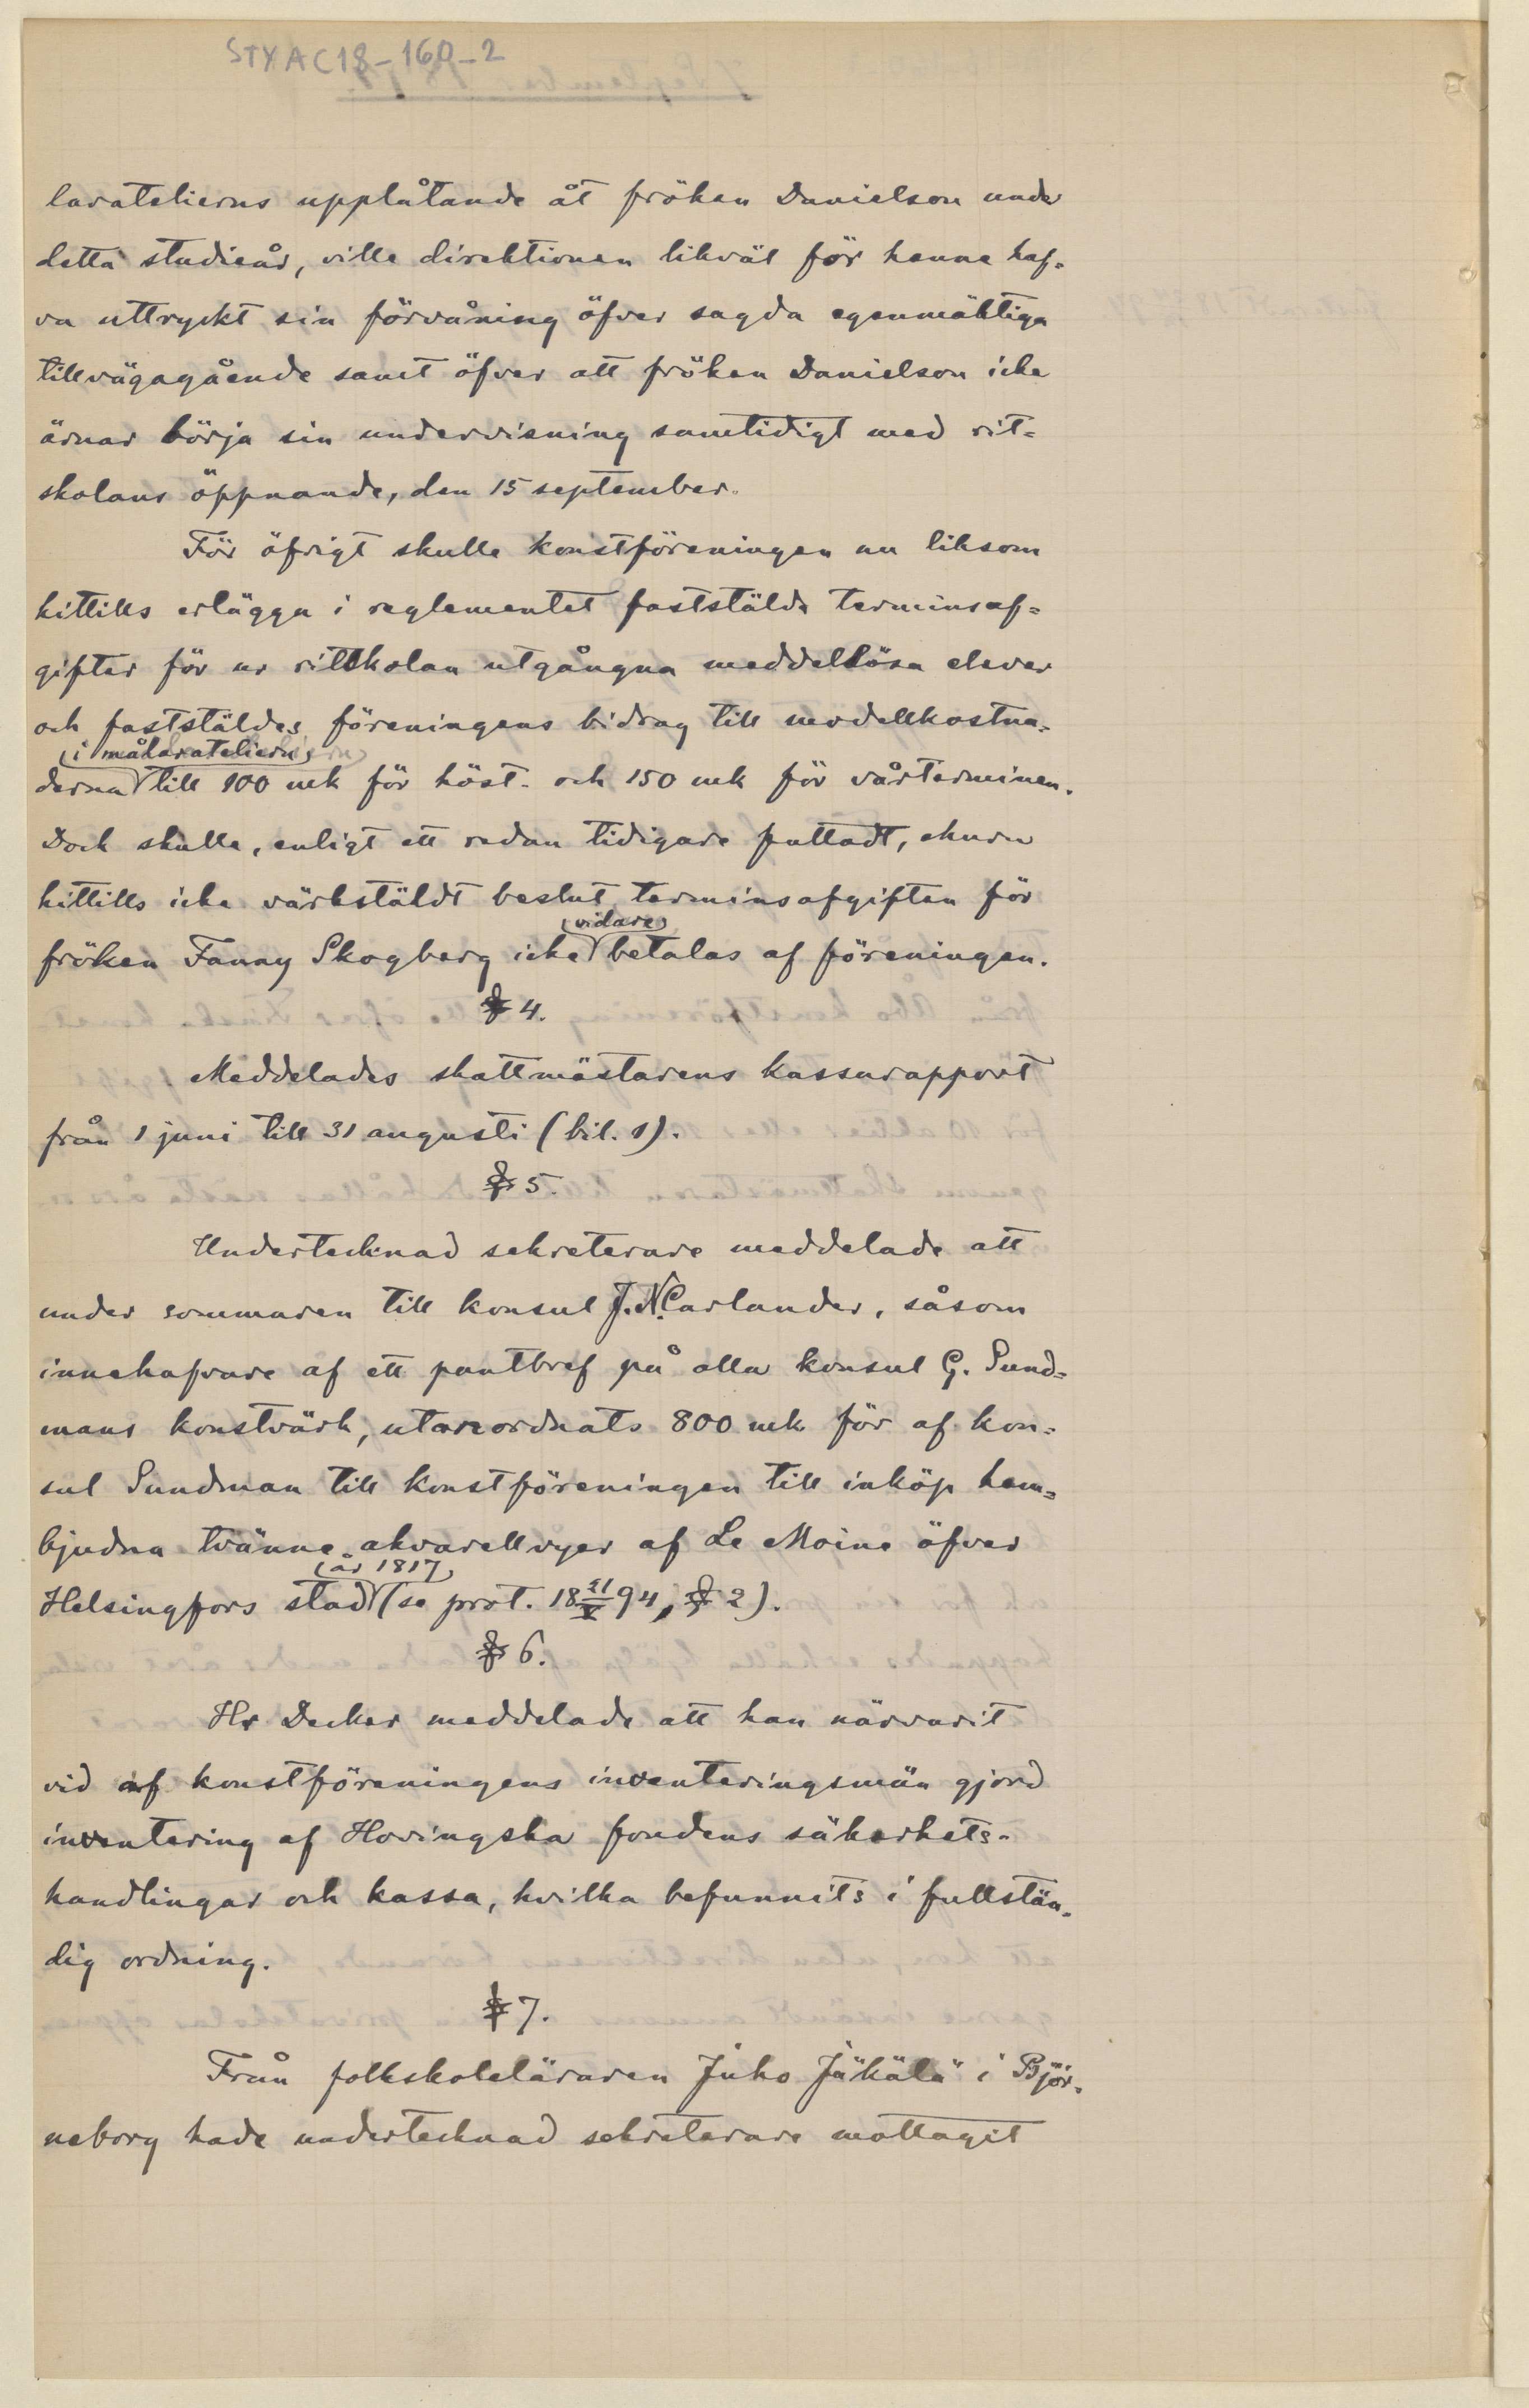 STYAC18-160-2
laratelierns upplåtande åt fröken Danielson under
detta studieår, ville direktionen likväl för henne haf-
va uttryckt sin förvåning öfver sagda egenmäktiga
tillvägagående samt öfver att fröken Danielson icke
ärnar börja sin undervisning samtidigt med rit-
skolans öppnande, den 15 september.
För öfrigt skulle konstföreningen nu liksom
hittills erlägga i reglementet fastställda terminsaf-
gifter för ur ritskolan utgångna meddellösa elever
och fastställdes föreningens bidrag till modellkostna-
i målarateliern
derna till 100 mk för höst- och 150 mk för vårterminen.
Dock skulle, enligt ett redan tidigare fattadt, ehuru
hittills icke värkstäldt beslut terminsafgiften för
vidare
fröken Fanny Skogberg icke betalas af föreningen.
§ 4.
Meddelades skattmästarens kassarapport
från 1 juni till 31 augusti (bil. 1).
§ 5.
Undertecknad sekreterare meddelade att
under sommaren till konsul J. N. Carlander, såsom
innehafvare af ett pantbref på alla konsul G. Sund-
mans konstvärk, utanordnats 800 mk för af kon-
sul Sundman till konstföreningen till inköp hem-
bjudna tvänne akvarellvyer af Le Moine öfver
år 1817
Helsingfors stad (se prot. 18 21/V 94, § 2).
§ 6.
Hr Decker meddelade att han närvarit
vid af konstföreningens inventeringsmän gjord
inventering af Hovingska fondens säkerhets-
handlingar och kassa, hvilka befunnits i fullstän-
dig ordning.
§ 7.
Från folkskoleläraren Juho Jäkälä i Björ-
neborg hade undertecknad sekreterare mottagit